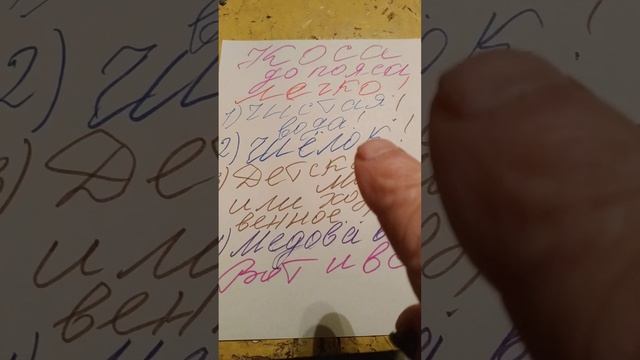 Коса
до пояса
легко!
1) Чистая!
вода!
2) Щёлок!
Детско
или хоз
венное
Медова в
Вот и вс